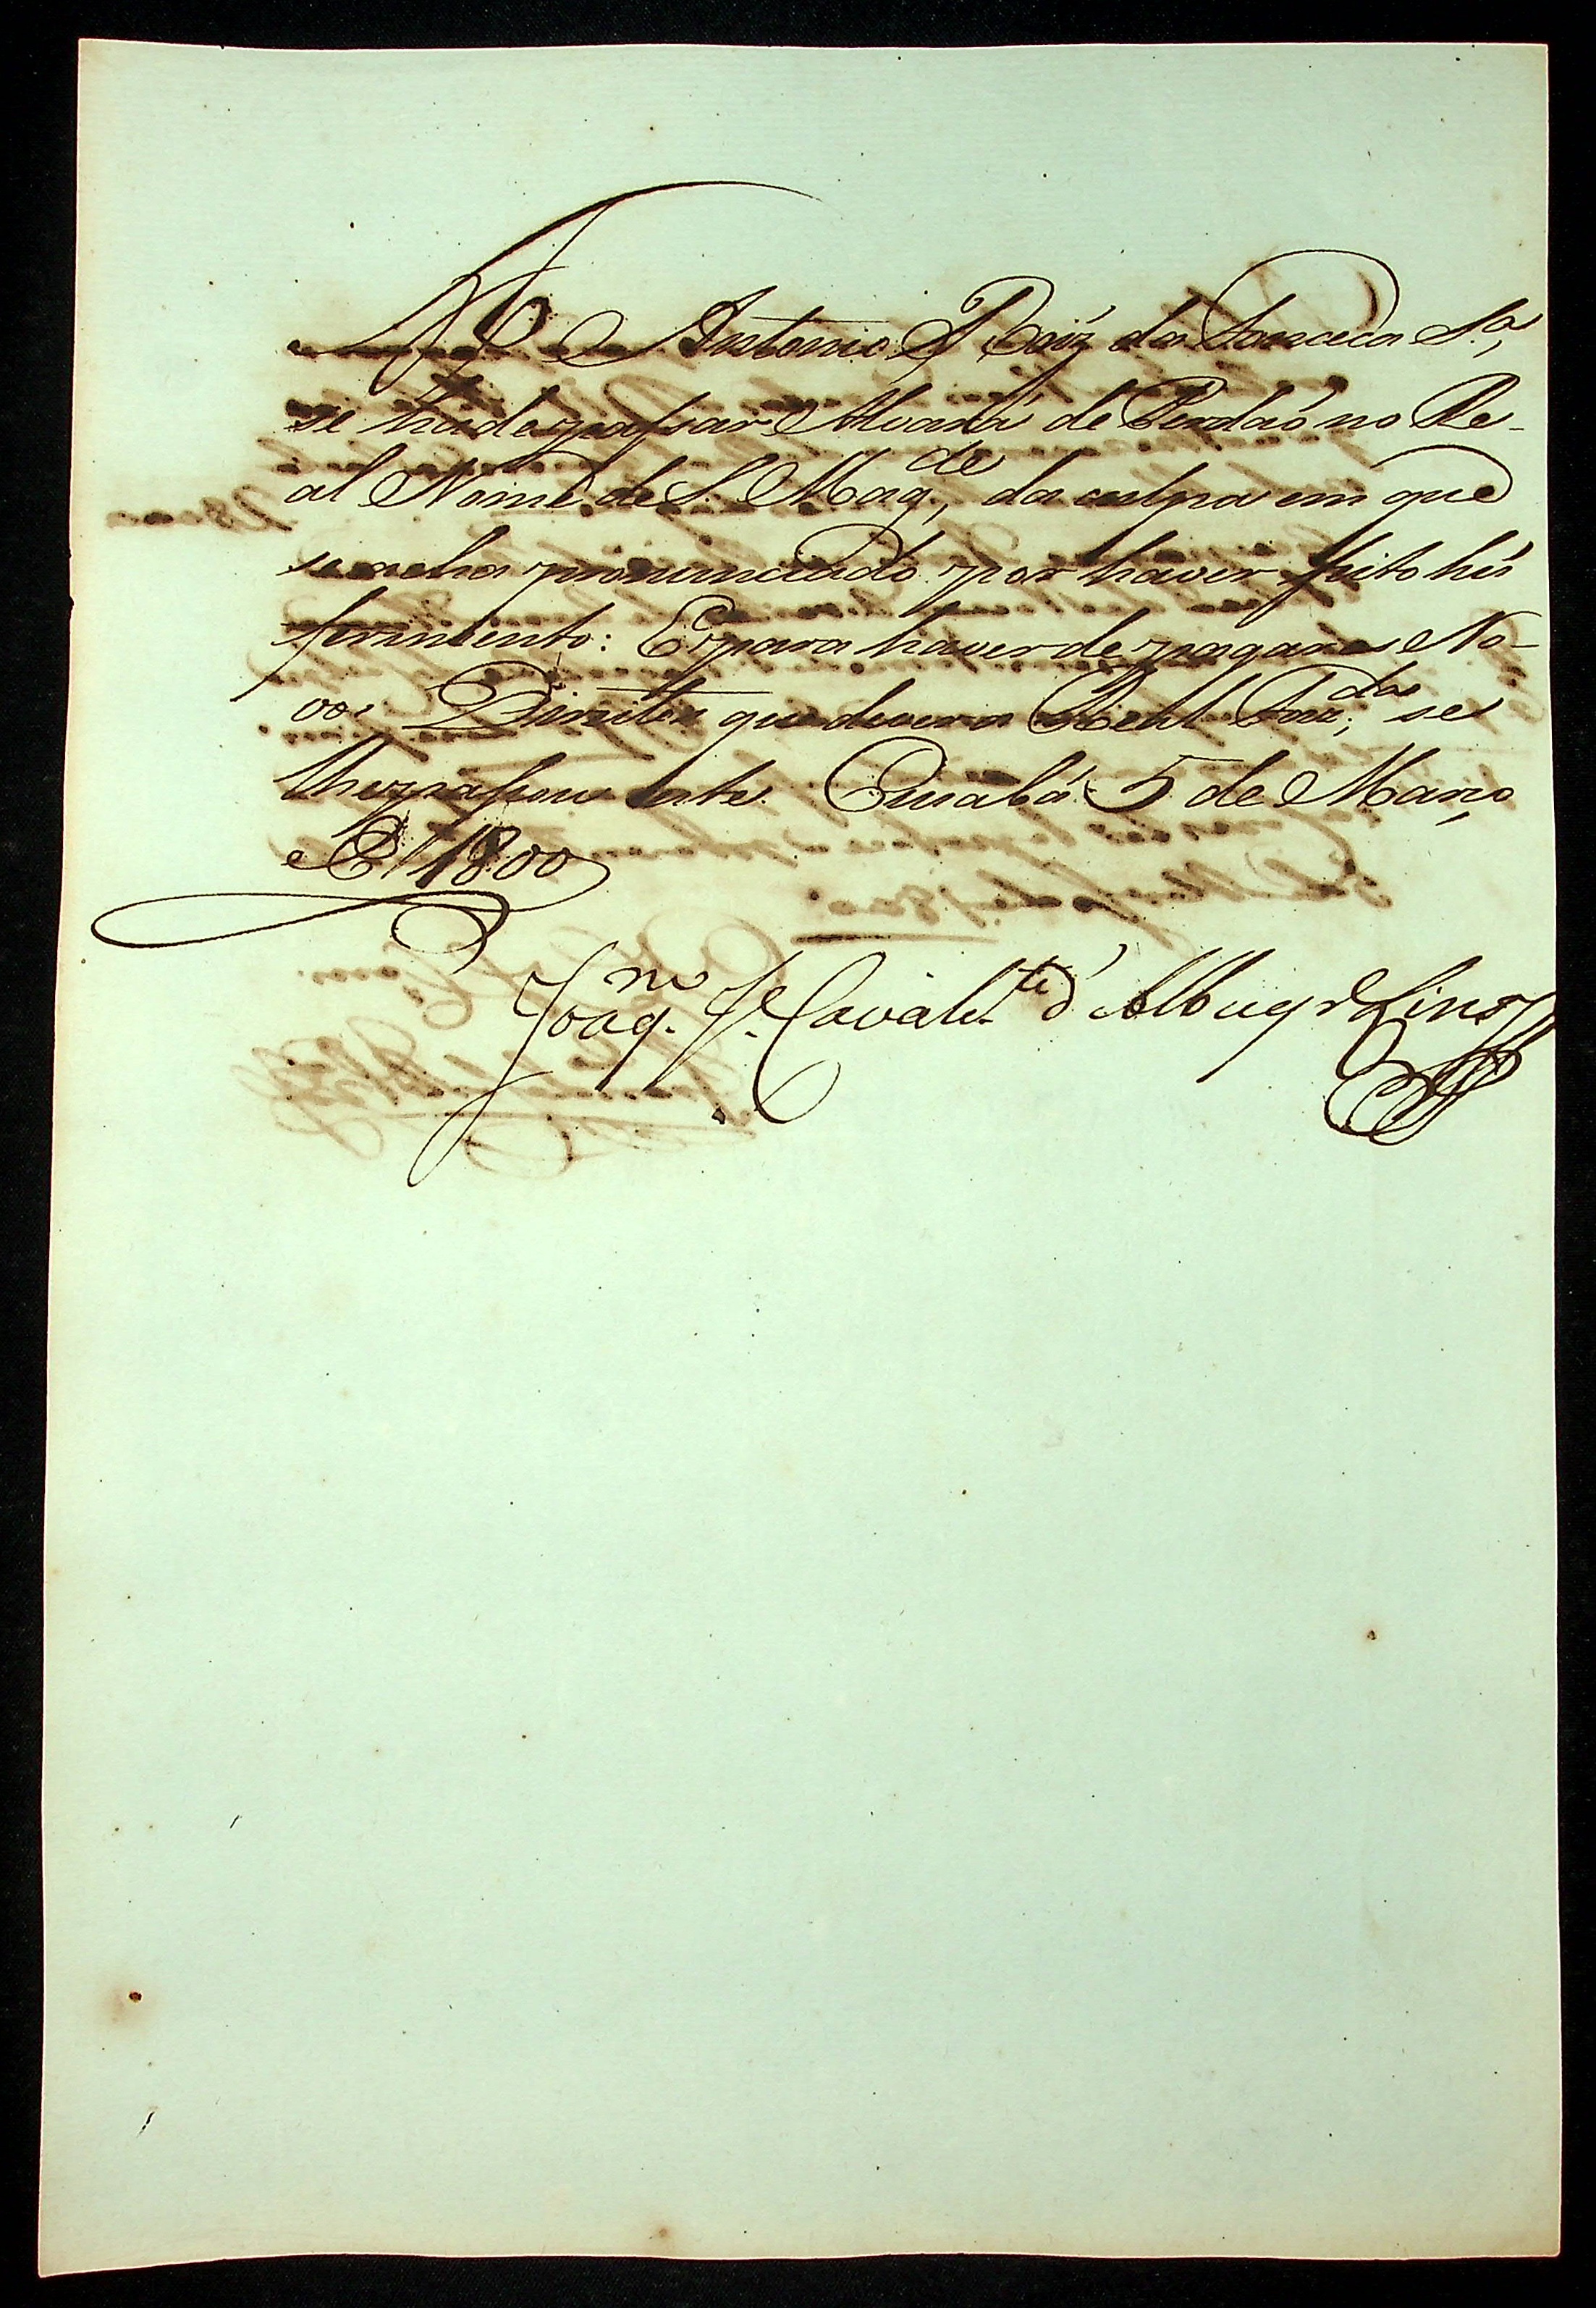 A Antonio Roiz da Fonceca S.ª,
se ha de passar Alvará de Perdaõ no Re-
al Nome de S. Mag.de, da culpa em que
se acha pronunciado por haver feito hũ
ferimento: E para haver de pagar os No-
vos Direitos que dever a Real Faz.da, se
lhe passou este. Cuiabá 5 de Março
de 1800
Joaq.m J.e Cavalc.te d'Albuqr.e Lins